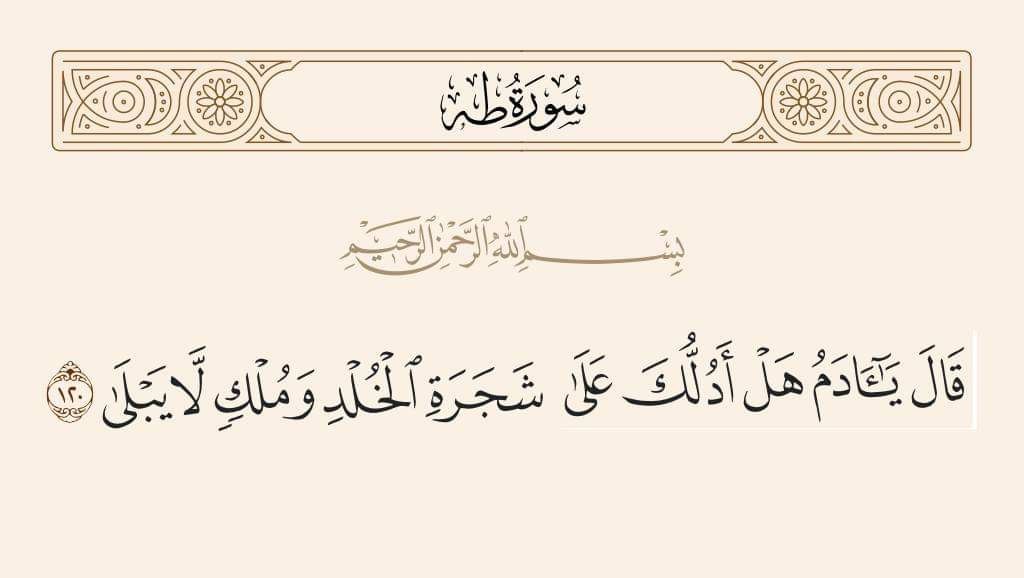 سُورَةُ طه
بِسْمِ ٱللَّهِ ٱلرَّحْمَٰنِ ٱلرَّحِيمِ
قَالَ يَـٰٓـَٔادَمُ هَلْ أَدُلُّكَ عَلَىٰ شَجَرَةِ ٱلْخُلْدِ وَمُلْكٍ لَّا يَبْلَىٰ ١٢٠